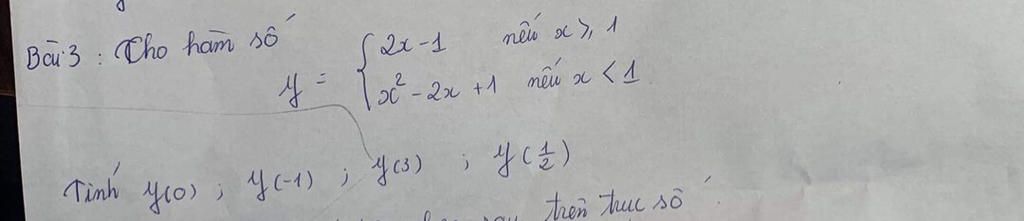 Bài 3 : Cho hàm số
y = { 2x - 1 nếu x ≥ 1
x² - 2x + 1 nếu x < 1
Tính y(0) ; y(-1) ; y(3) ; y(1/2)
trên trục số